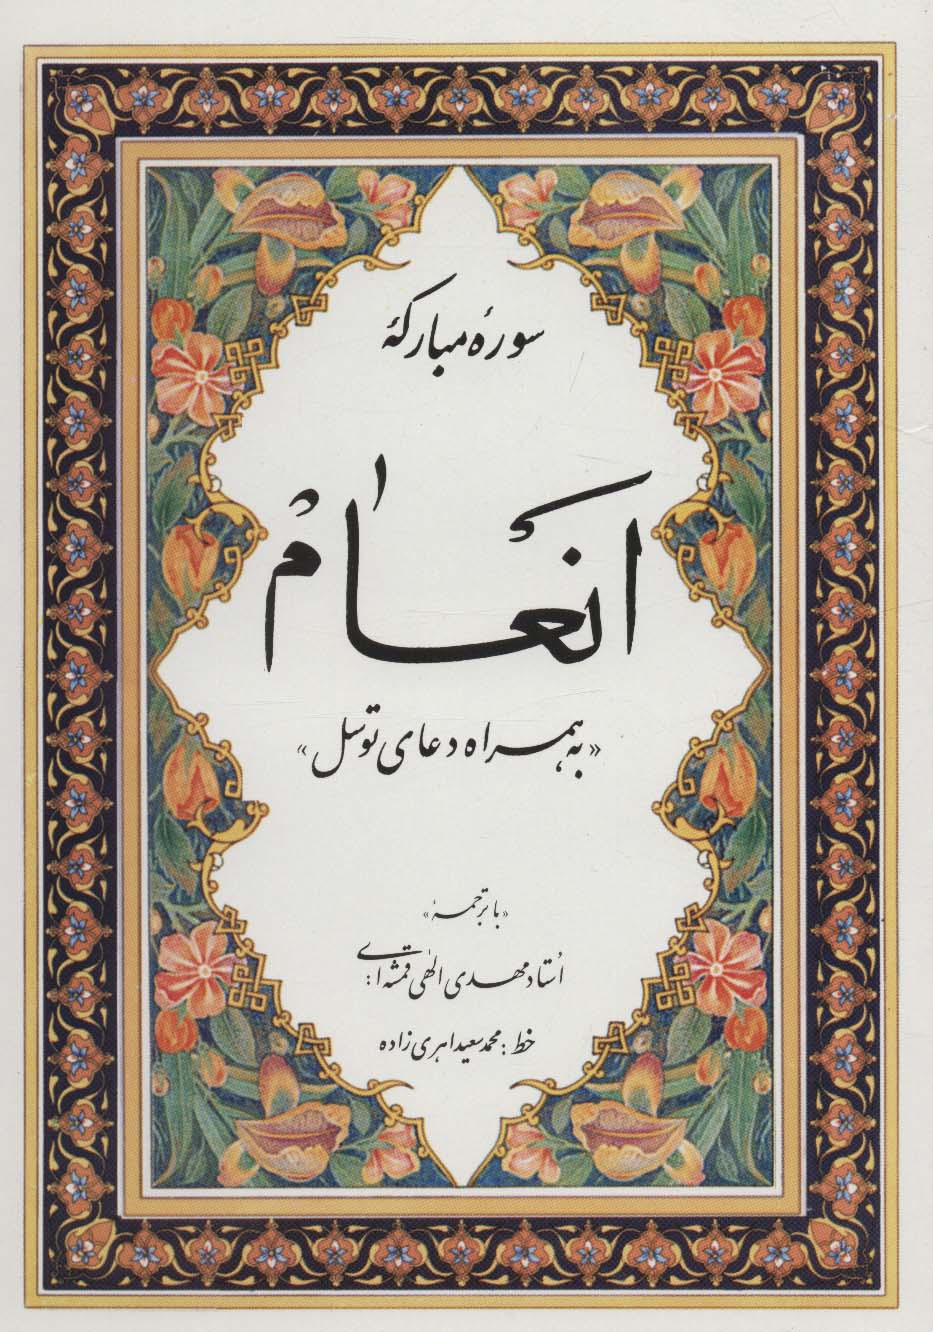 سورهٔ مبارکهٔ
انعام
«به همراه دعای توسل»
«با ترجمهٔ»
اُستاد مهدی الٰهی قمشه‌ای:
خط: محمد سعید اهری زاده